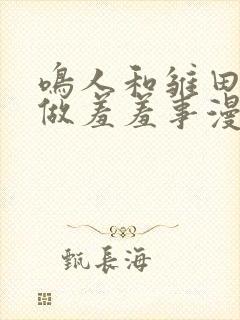 鳴人和雏田
做羞羞事漫
甄長海